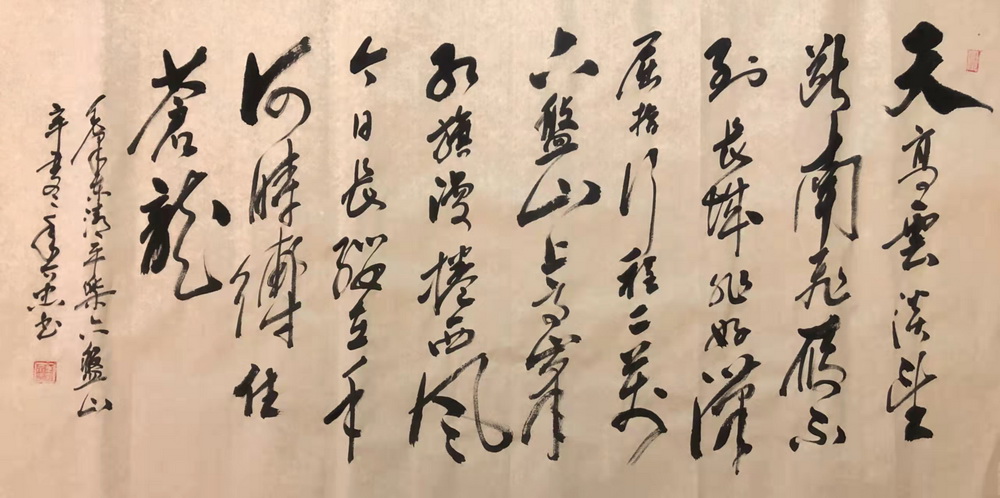 天高雲淡望
斷南飛雁不
到長城非好漢
屈指行程二萬
六盤山上高峯
紅旗漫捲西風
今日長纓在手
何時縛住
蒼龍
毛澤東清平樂六盤山
辛丑冬書